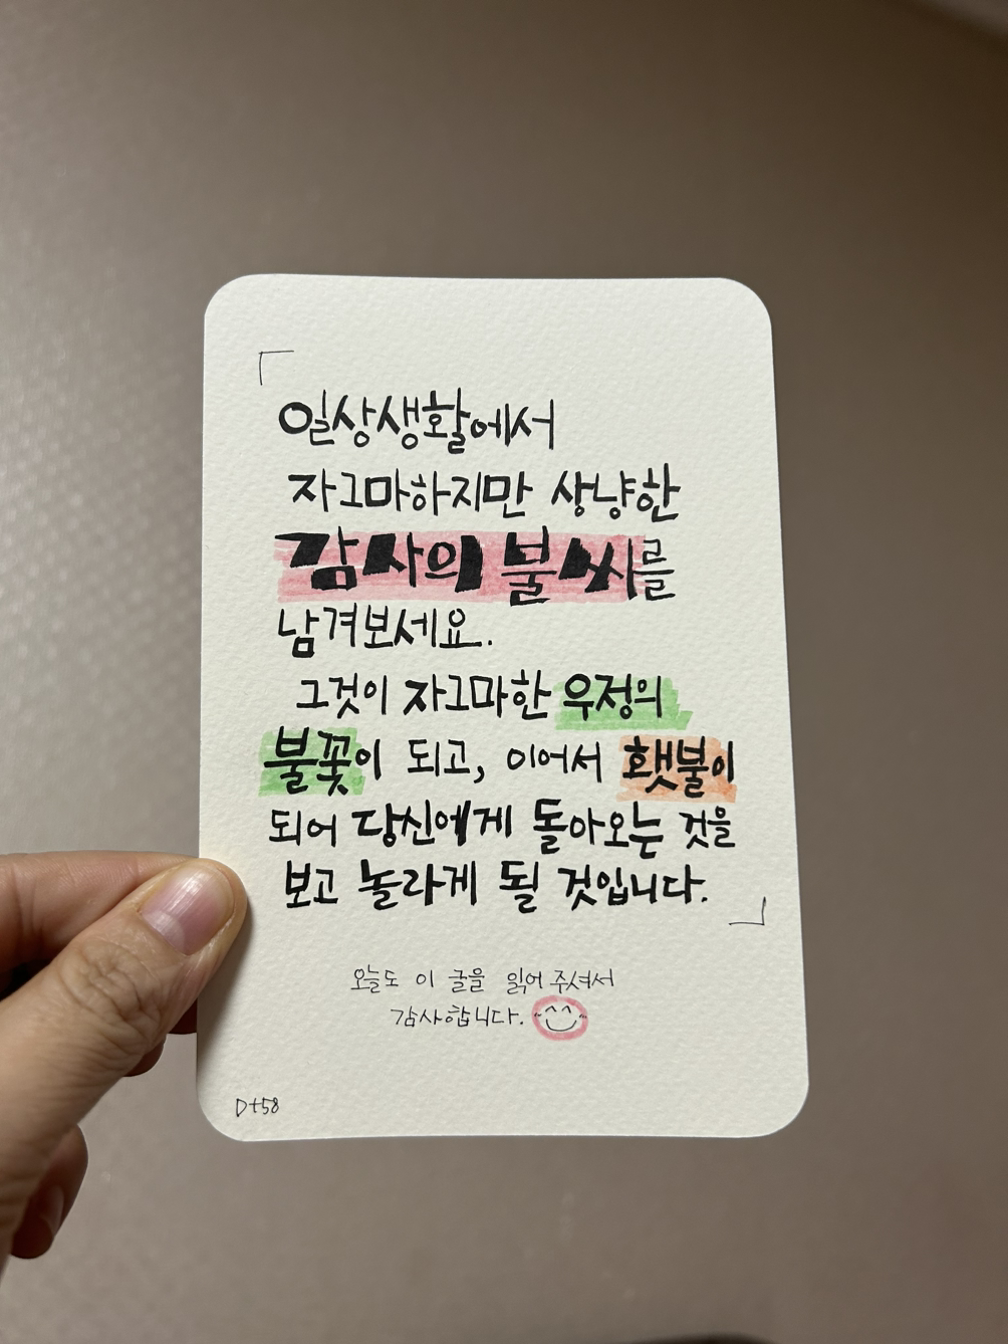 「일상생활에서
자그마하지만 상냥한
감사의 불씨를
남겨보세요.
그것이 자그마한 우정의
불꽃이 되고, 이어서 횃불이
되어 당신에게 돌아오는 것을
보고 놀라게 될 것입니다.」
오늘도 이 글을 읽어 주셔서
감사합니다.
D+58